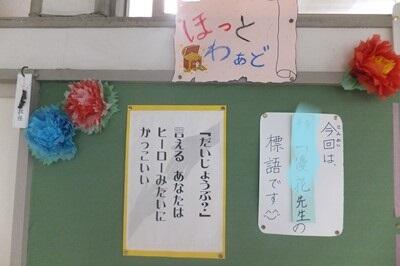 ほっと
わぁど
『だいじょうぶ?』
言える あなたは
ヒーローみたいに
かっこいい
今回は、
優花先生の
標語です